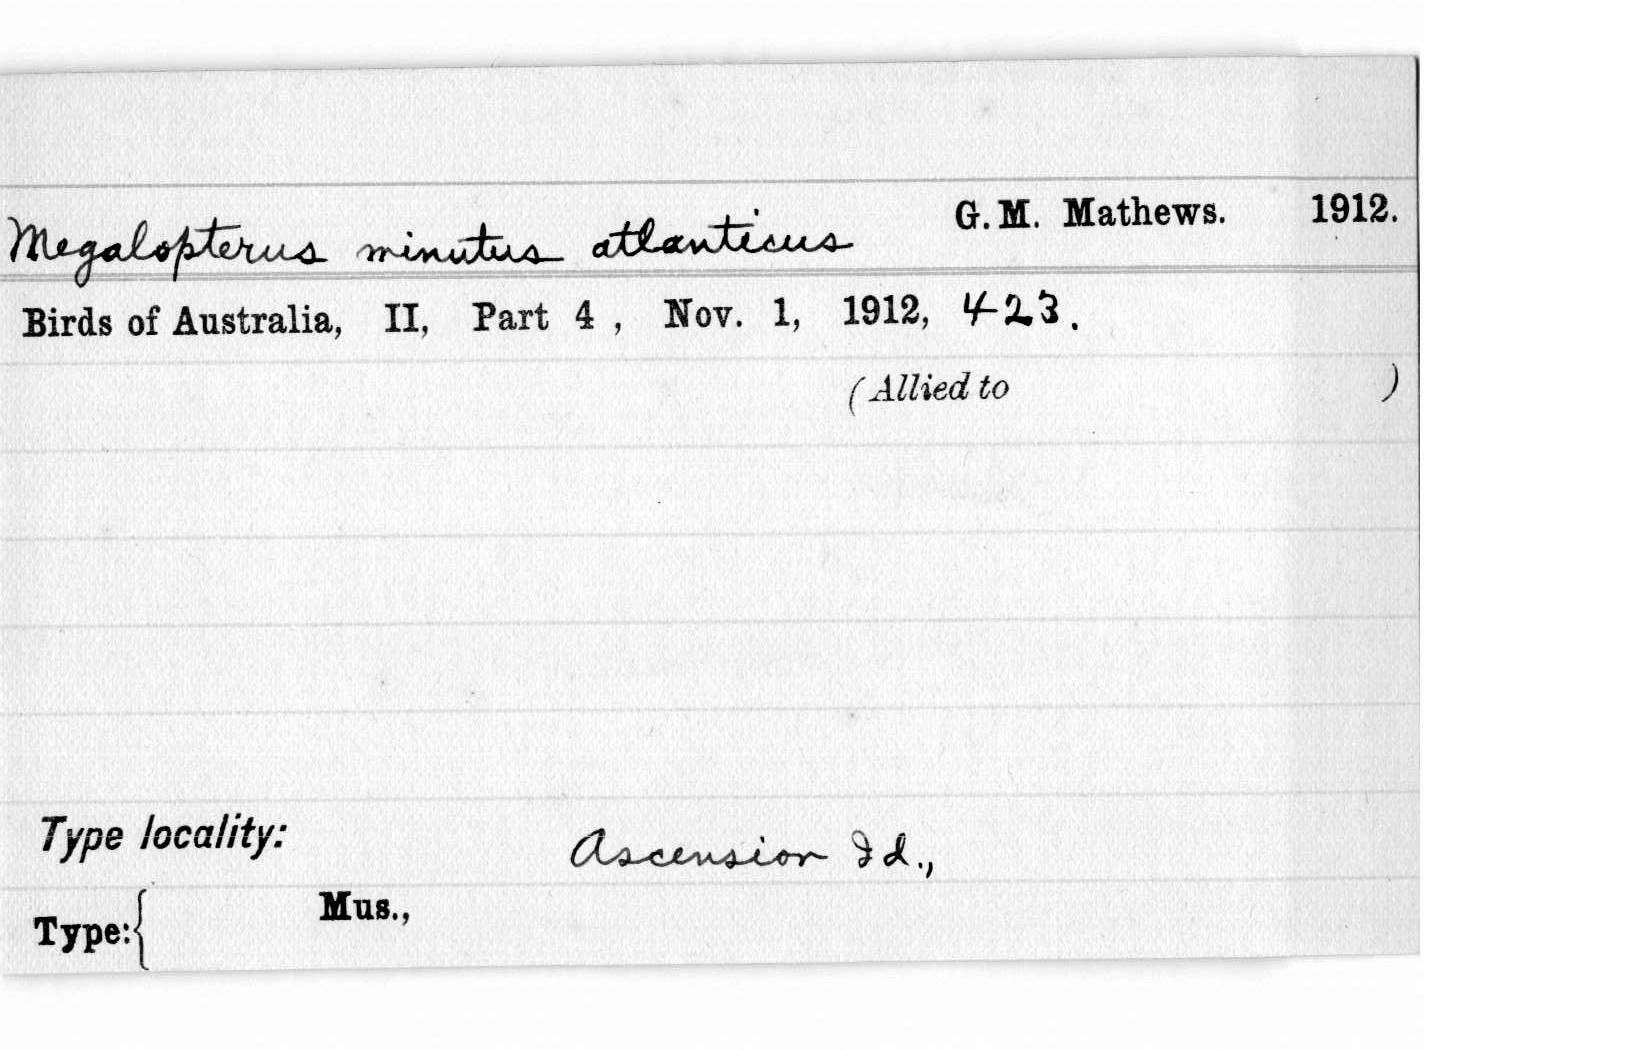 Megalopterus minutus atlanticus G. M. Mathews. 1912.
Birds of Australia, II, Part 4 , Nov. 1, 1912, 423.
(Allied to )
Type locality: Ascension Id.,
Type:{ Mus.,